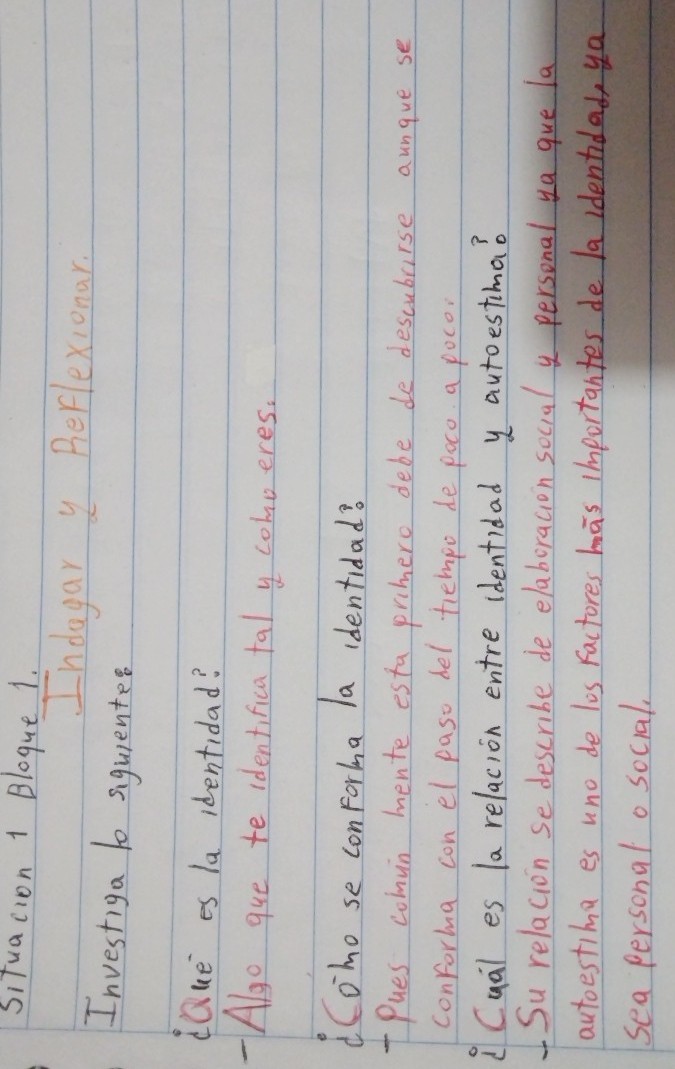 Situacion 1 Bloque 1.
Indagar y Reflexionar.
Investiga lo siguiente:
¿Qué es la identidad?
- Algo que te identifica tal y como eres.
¿Cómo se conforma la identidad?
- Pues común mente esta primero debe de descubrirse aunque se
conforma con el paso del tiempo de poco a poco.
¿Cuál es la relación entre identidad y autoestima?
- Su relación se describe de elaboración social y personal ya que la
autoestima es uno de los factores más importantes de la identidad, ya
sea personal o social.